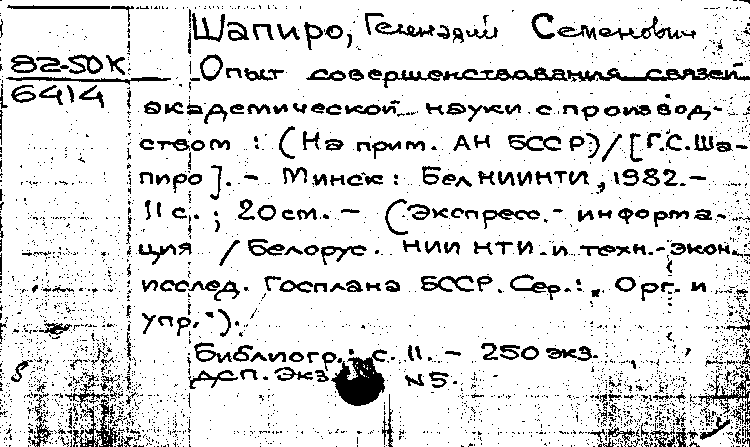 Шапиро, Геннадий Семенович
82-50К
6414
Опыт совершенствования связей
академической науки с производ-
ством : (На прим. АН БССР)/[Г.С.Ша-
пиро]. - Минск: БелНИИНТИ, 1982.-
11 с. ; 20 cm. - (Экспресс.- информа-
ция / Белорус. НИИ НТИ. и техн.-экон.
исслед. Госплана БССР. Сер.: „ Орг. и
упр.").
Библиогр.: с. 11. - 250 экз.
ДСП. Экз. N5.